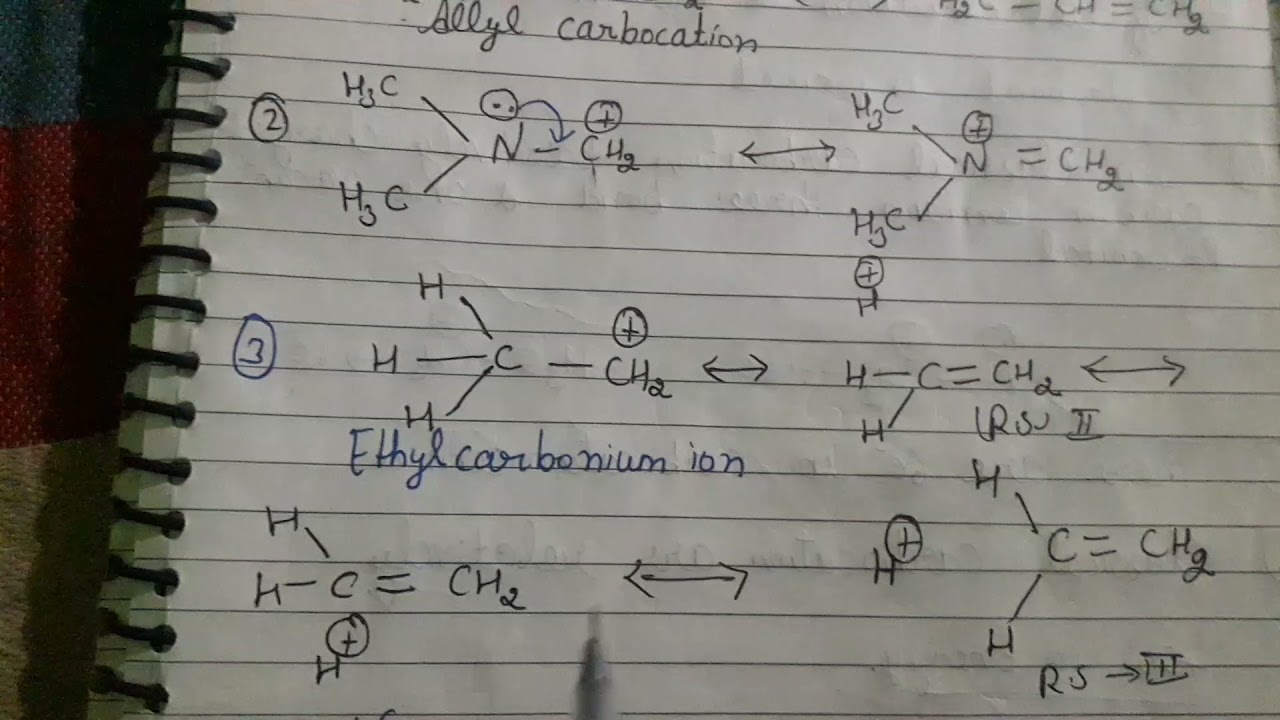 H₂C – CH = CH₂
Allyl carbocation
② H₃C H₃C N – CH₂ ⊕ ⟷ H₃C H₃C N ⊕ = CH₂
③ H H H C – CH₂ ⊕ ⟷ H ⊕ H – C = CH₂ H ⟷
(RS) II
Ethylcarbonium ion
H H – C = CH₂ H ⊕ ⟷ H ⊕ H C = CH₂ H
RS → III